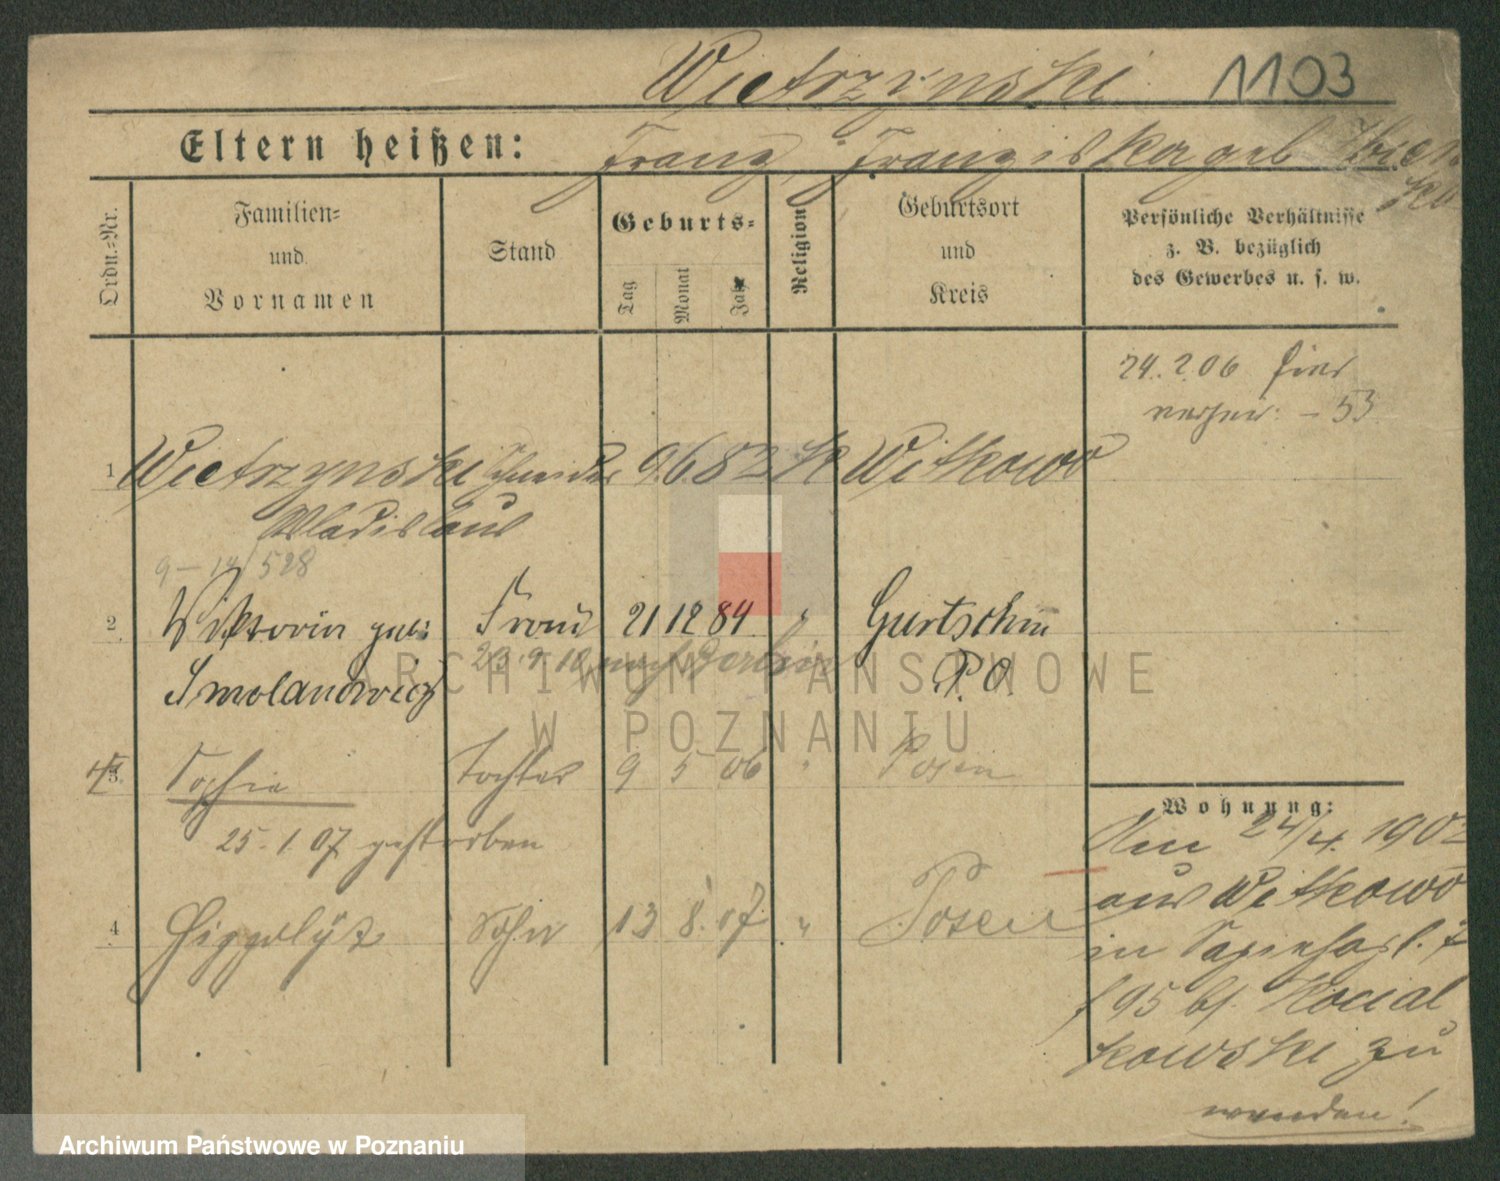 Wietrzynski 1103
Eltern heißen: Franz, Franziska geb
Ordn.=Nr.
Familien=
und
Vornamen
Stand
Geburts=
Tag
Monat
Jahr
Religion
Geburtsort
und
Kreis
Persönliche Verhältnisse
z. B. bezüglich
des Gewerbes u. s. w.
24.2.06 hier
53
1 Wietrzynski Schneider 9.6.82 K Witkowo
Wladislaus
9-14/528
2 Wiktoria geb: Frau 21 12 84 " Gurtschin
23.9.10 nach Berlin
Smolanowicz P. O.
3 Sophie Tochter 9 5 06 " Posen
25.1.07 gestorben
4 Hippolyt Sohn 13 8. 07 " Posen
Wohnung:
Am 24/4. 1902
aus Witkowo
in
95 bf. Kocial
kowski zu
wenden!
ARCHIWUM PAŃSTWOWE
W POZNANIU
Archiwum Państwowe w Poznaniu